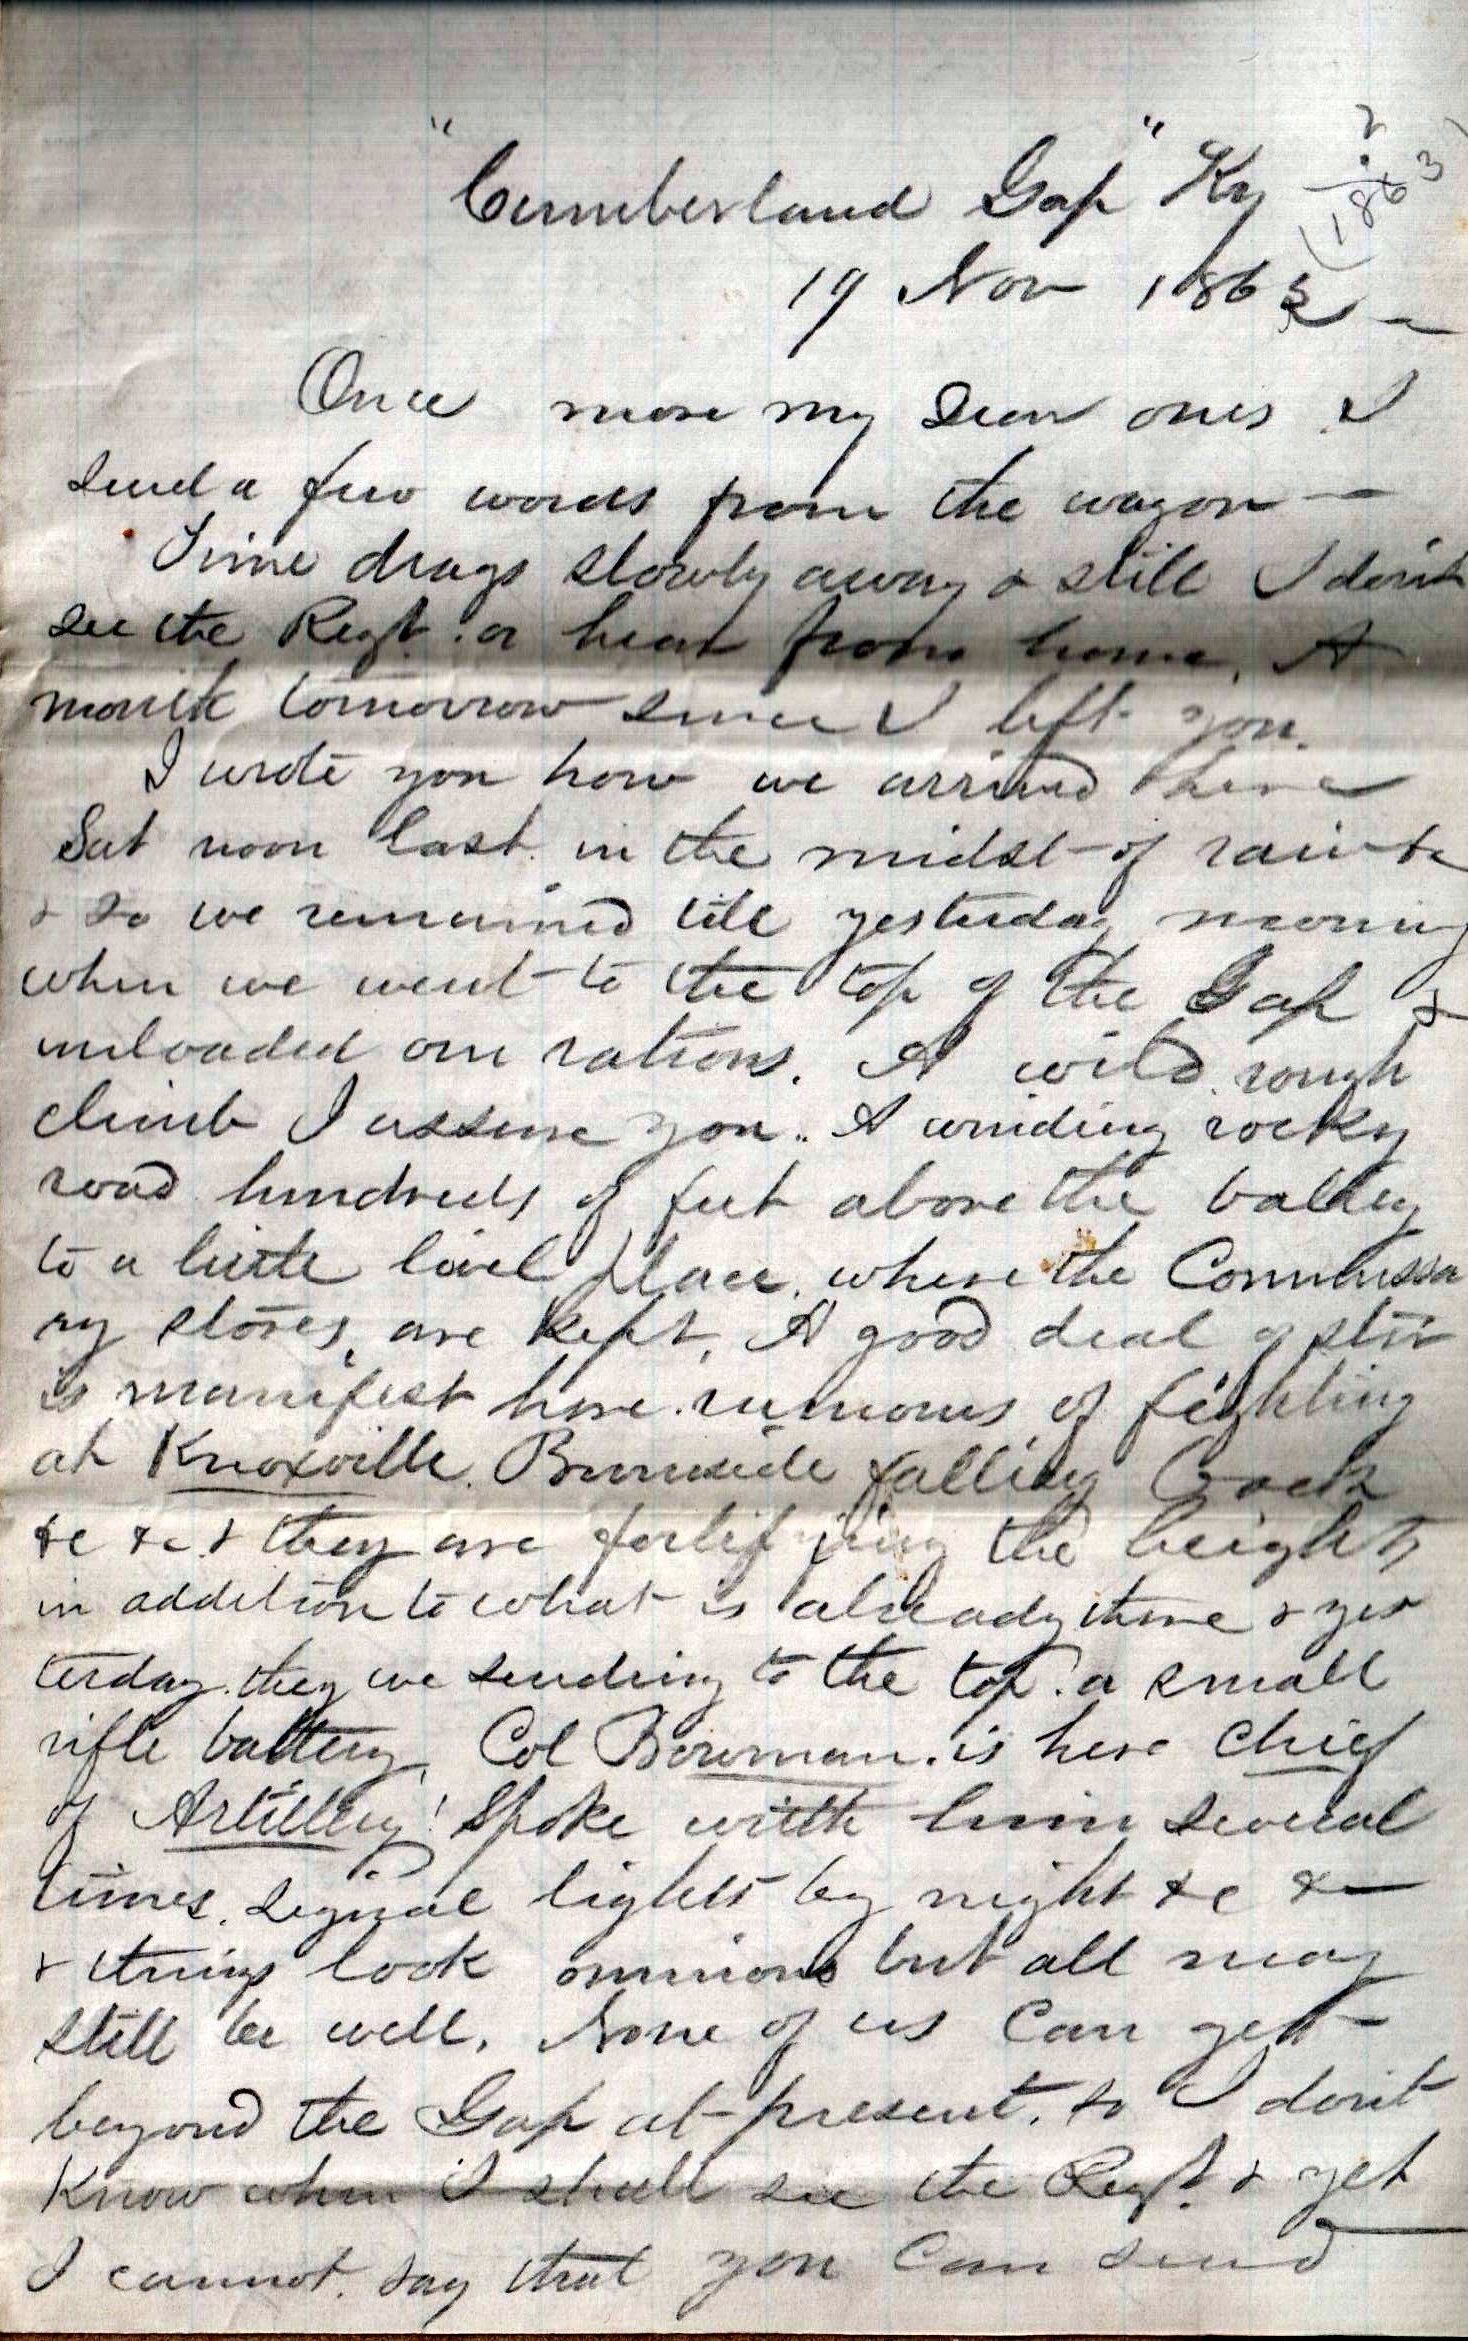 "Cumberland Gap" Ky
?
(1863)
19 Nov 1863
Once more my dear ones I
send a few words from the wagon —
Time drags slowly away & still I don't
see the Regt. or hear from home. A
month tomorrow since I left you.
I wrote you how we arrived here
Sat noon last. in the midst of rain &c
& so we remained till yesterday morning
when we went to the top of the Gap &
unloaded our rations. A wild rough
climb I assure you. A winding rocky
road hundreds of feet above the valley
to a little level place, where the Commissa
ry stores, are kept. A good deal of stir
is manifest here. rumours of fighting
at Knoxville. Burnside falling back
&c &c. & they are fortifying the heights
in addition to what is already there & yes
terday. they we sending to the top. a small
rifle battery. Col Bowman. is here chief
of Artillery! Spoke with him several
times. signal lights by night &c &c —
& things look ominous but all may
still be well. None of us can get
beyond the Gap at present. so I don't
know when I shall see the Regt. & yet
I cannot. say that you can send